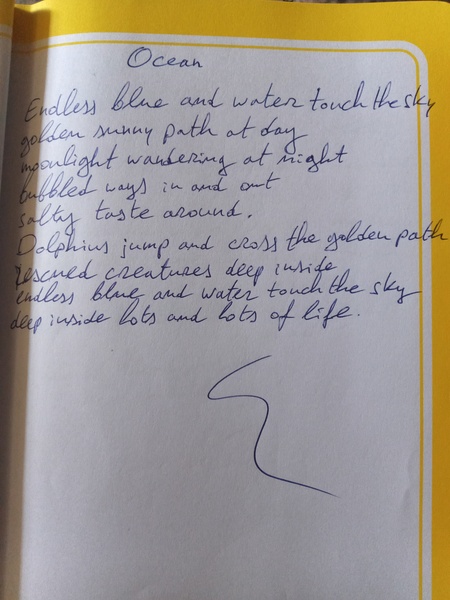 Ocean
Endless blue and water touch the sky
golden sunny path at day
moonlight wandering at night
bubbled ways in and out
salty taste around.
Dolphins jump and cross the golden path
rescued creatures deep inside
endless blue and water touch the sky
deep inside lots and lots of life.